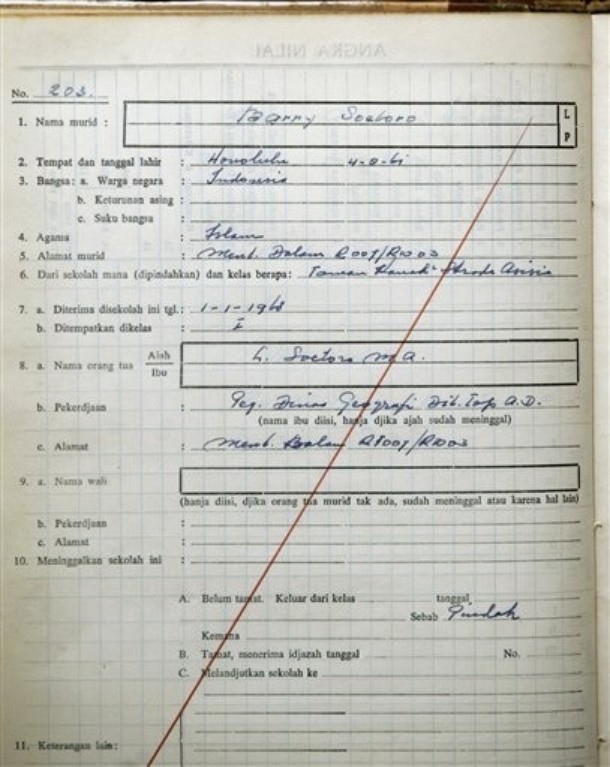 ANGKA NILAI
No. 203.
1. Nama murid : Barry Soetoro L
P
2. Tempat dan tanggal lahir : Honolulu 4-8-61
3. Bangsa: a. Warga negara : Indonesia
b. Keturunan asing :
c. Suku bangsa :
4. Agama : Islam
5. Alamat murid : Ment. Dalam R007/RW03
6. Dari sekolah mana (dipindahkan) dan kelas berapa: Taman Asisia
7. a. Diterima disekolah ini tgl.: 1-1-1968
b. Ditempatkan dikelas : I
8. a. Nama orang tua Aiah L. Soetoro M.A.
Ibu
b. Pekerdjaan : Peg. Dinas Geografi Dit. Top A.D.
(nama ibu diisi, hanja djika ajah sudah meninggal)
c. Alamat : Ment. Dalam RT007/RW03
9. a. Nama wali
(hanja diisi, djika orang tua murid tak ada, sudah meninggal atau karena hal lain)
b. Pekerdjaan :
c. Alamat :
10. Meninggalkan sekolah ini :
A. Belum tamat. Keluar dari kelas tanggal
Sebab Pindah
Kemana
B. Tamat, menerima idjazah tanggal No.
C. Melandjutkan sekolah ke
11. Keterangan lain: